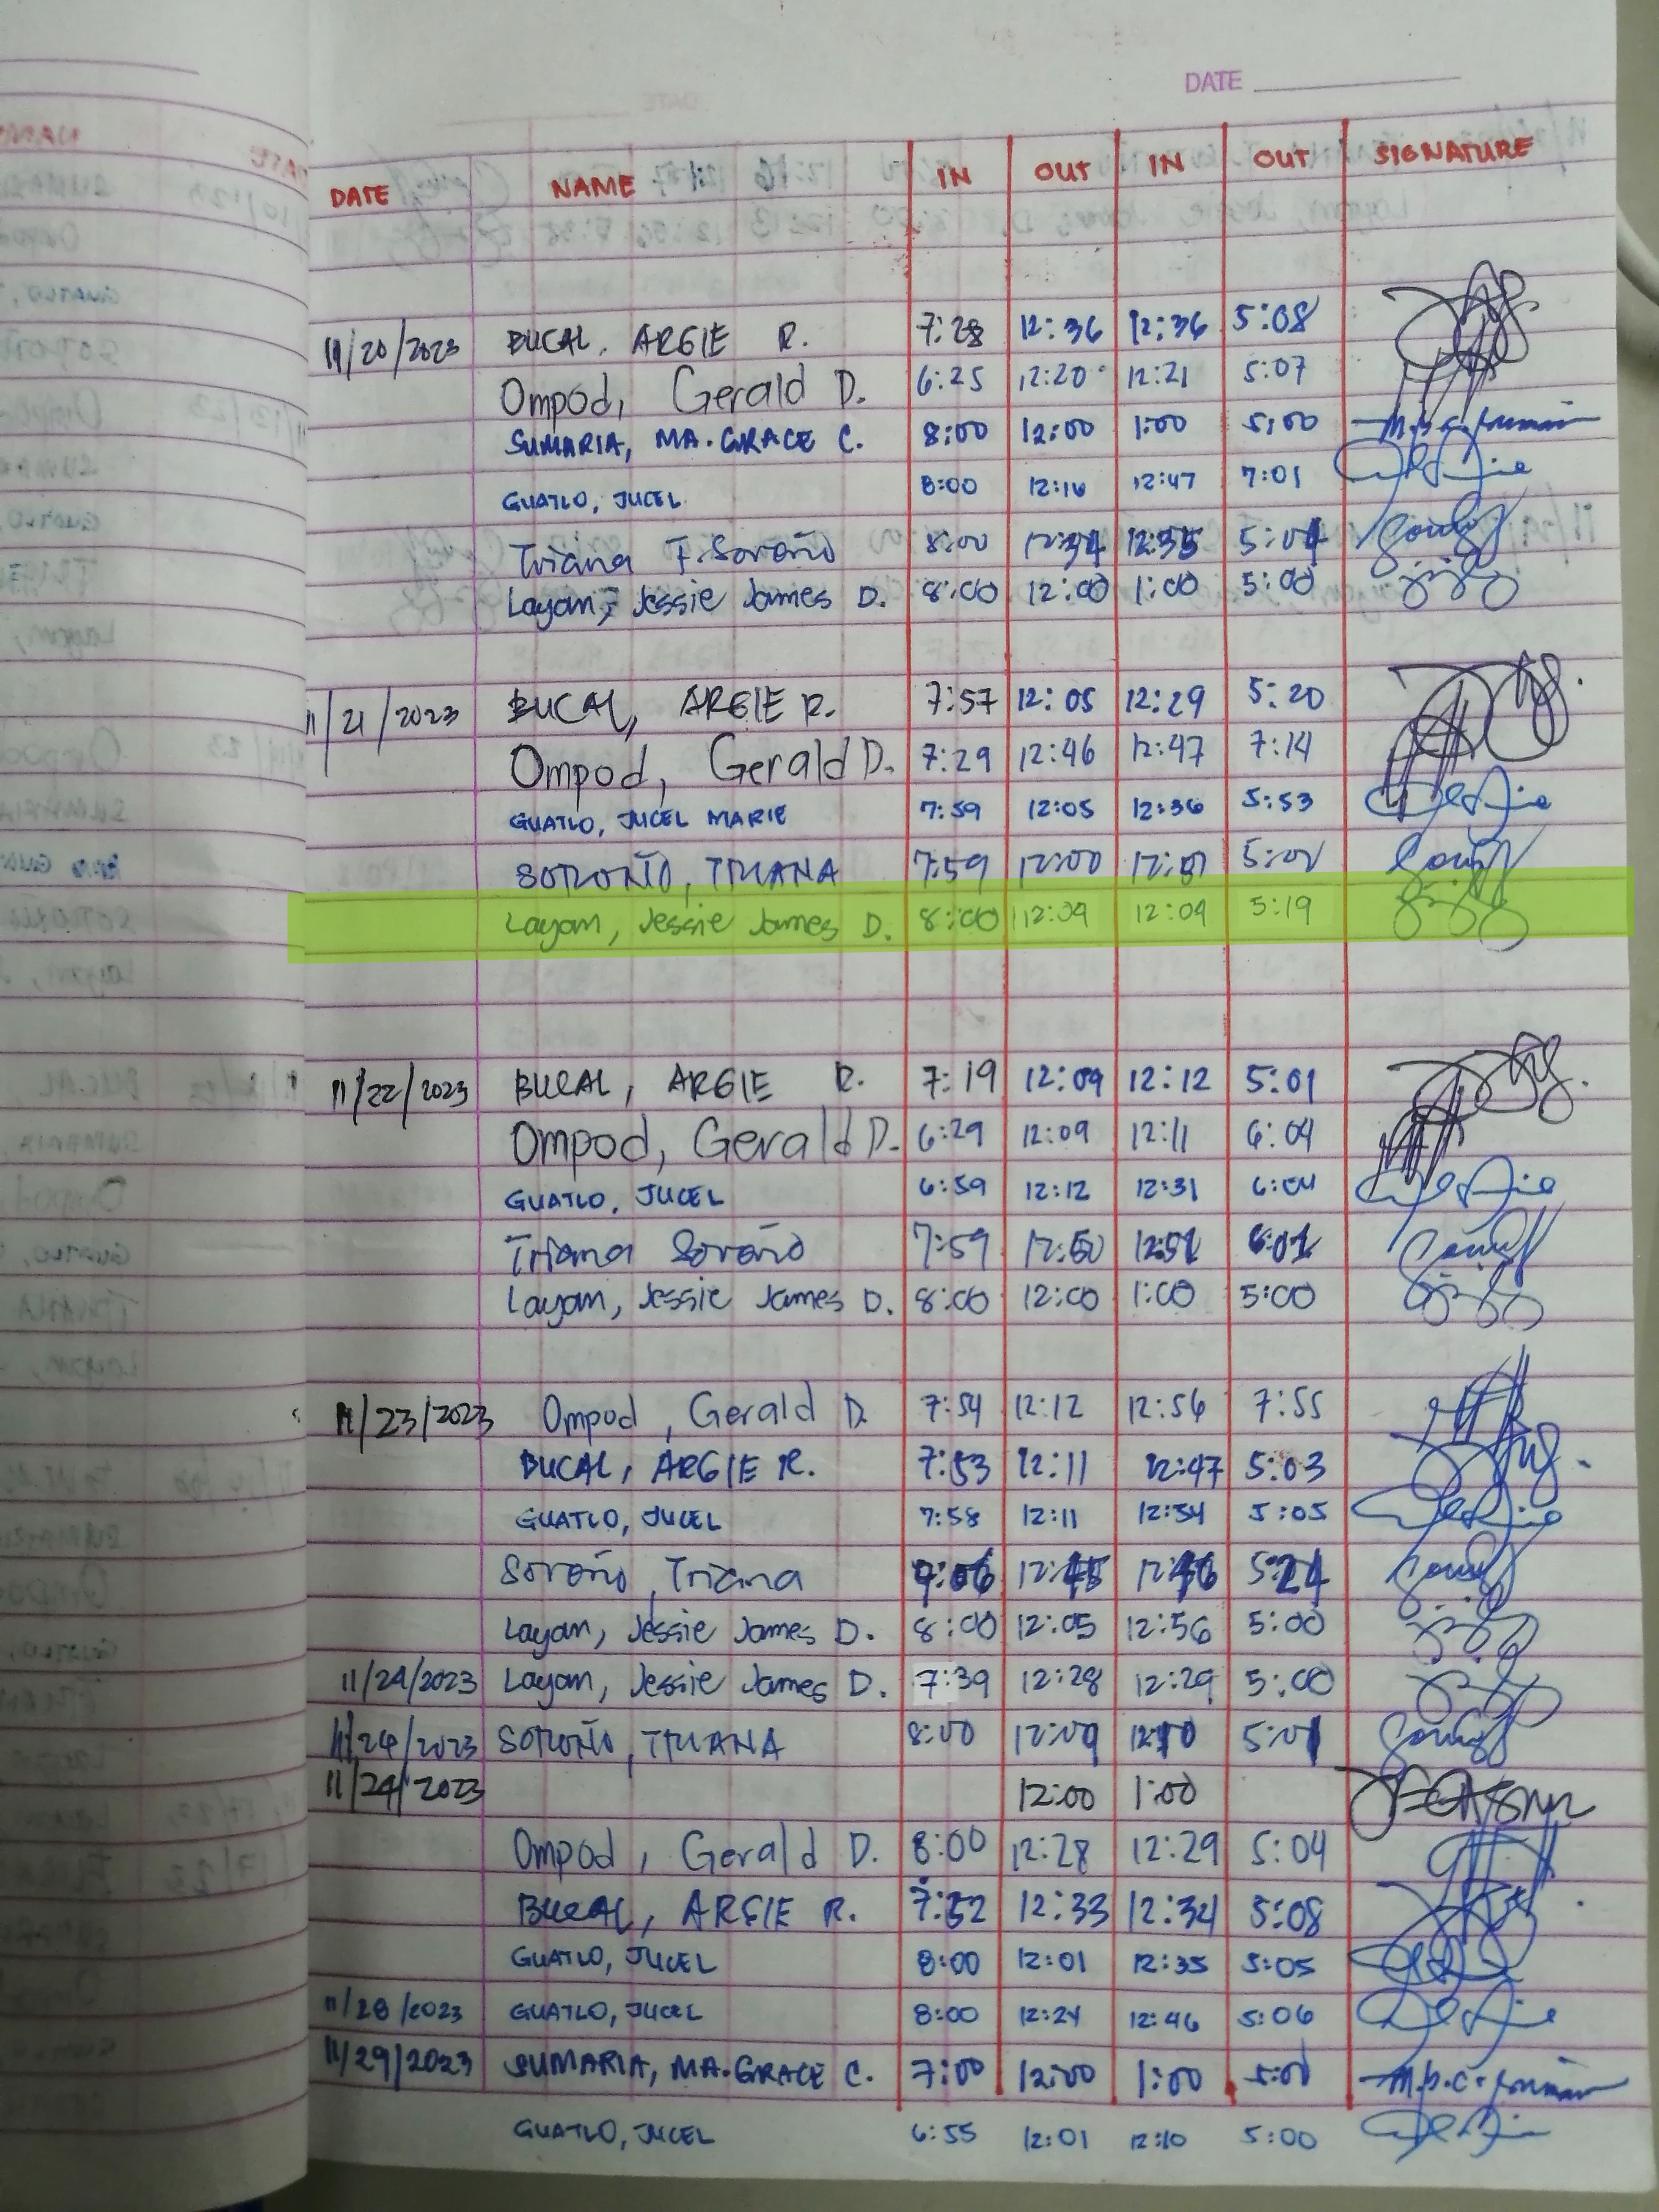 DATE
DATE NAME IN OUT IN OUT SIGNATURE
11/20/2023 BUCAL, ARGIE R. 7:28 12:36 12:36 5:08
Ompod, Gerald D. 6:25 12:20 12:21 5:07
SUMARIA, MA. GRACE C. 8:00 12:00 1:00 5:00
GUATLO, JUCEL 8:00 12:16 12:47 7:01
Triana F. Soroño 8:00 12:34 12:35 5:04
Layam, Jessie James D. 8:00 12:00 1:00 5:00
11/21/2023 BUCAL, ARGIE R. 7:57 12:05 12:29 5:20
Ompod, Gerald D. 7:29 12:46 12:47 7:14
GUATLO, JUCEL MARIE 7:59 12:05 12:36 5:53
SOROÑO, TRIANA 7:59 12:00
Layam, Jessie James D. 8:00 12:09 12:09 5:19
11/22/2023 BUCAL, ARGIE R. 7:19 12:09 12:12 5:01
Ompod, Gerald D. 6:29 12:09 12:11 6:04
GUATLO, JUCEL 6:59 12:12 12:31 6:04
Triana Soroño 7:59 12:50 12:51 6:01
Layam, Jessie James D. 8:00 12:00 1:00 5:00
11/23/2023 Ompod, Gerald D. 7:54 12:12 12:56 7:55
BUCAL, ARGIE R. 7:53 12:11 12:47 5:03
GUATLO, JUCEL 7:58 12:11 12:54 5:05
Soroño, Triana 12:45 12:46 5:24
Layam, Jessie James D. 8:00 12:05 12:56 5:00
11/24/2023 Layam, Jessie James D. 7:39 12:28 12:29 5:00
11/24/2023 SOROÑO, TRIANA 8:00 12:09 12:10 5:01
11/24/2023 12:00 1:00
Ompod, Gerald D. 8:00 12:28 12:29 5:04
BUCAL, ARGIE R. 7:52 12:33 12:34 5:08
GUATLO, JUCEL 8:00 12:01 12:35 5:05
11/28/2023 GUATLO, JUCEL 8:00 12:24 12:46 5:06
11/29/2023 SUMARIA, MA. GRACE C. 7:00 12:00 1:00 5:00
GUATLO, JUCEL 6:55 12:01 12:10 5:00